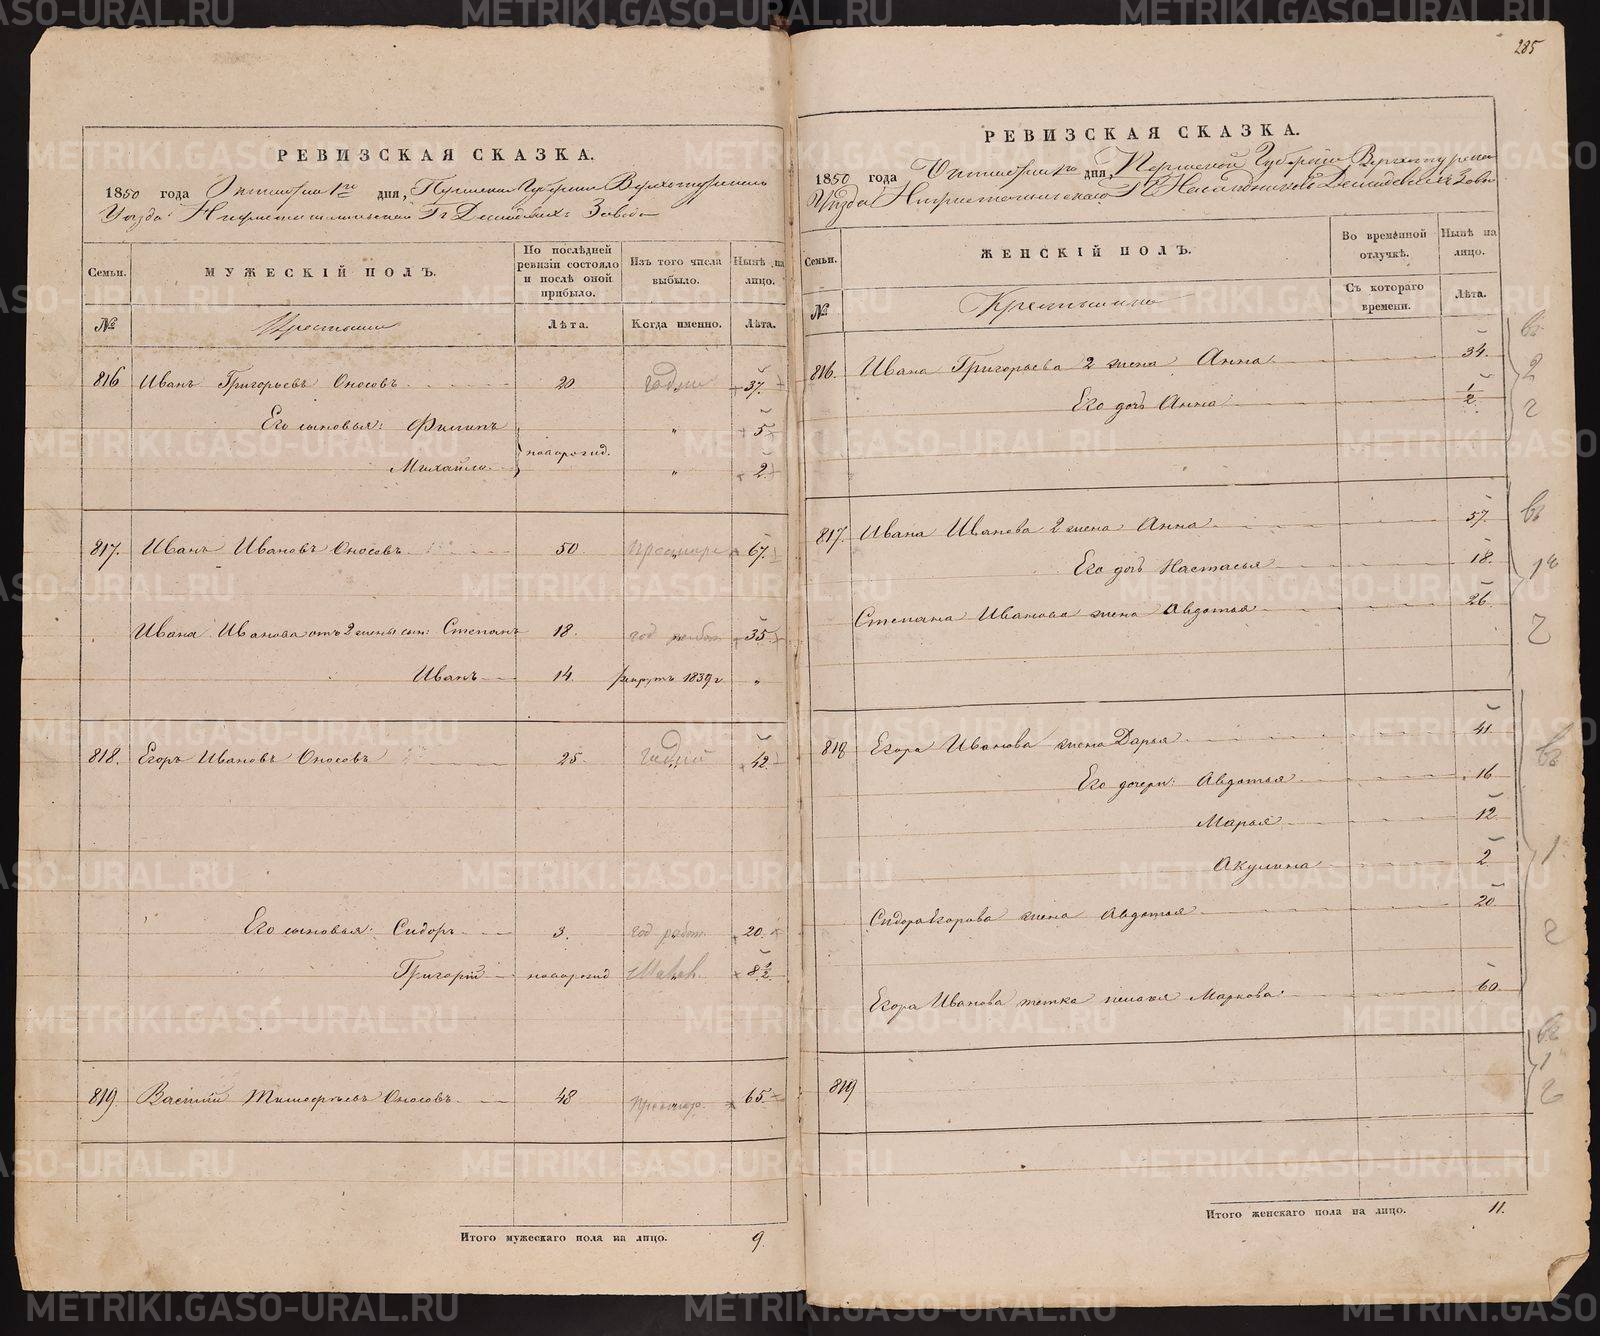 285
РЕВИЗСКАЯ СКАЗКА.
1850 года Октября 1го дня, Пермской Губернии Верхотурскаго
Уѣзда Нижнетагильскаго Гг. Демидовыхъ Завода
Семьи.
МУЖЕСКІЙ ПОЛЪ.
По послѣдней ревизіи состояло и послѣ оной прибыло.
Изъ того числа выбыло.
Нынѣ на лицо.
№
Крестьяне
Лѣта.
Когда именно.
Лѣта.
816 Иванъ Григорьевъ Оносовъ 20 годный 37.
Его сыновья: Филипъ " 5
новорожд.
Михайло " 2
817. Иванъ Ивановъ Оносовъ 50 престар 67.
Ивана Иванова отъ 2 жены сын: Степанъ 18. год работ 35.
Иванъ 14 рекрутъ 1839 г. "
818. Егоръ Ивановъ Оносовъ 25. годный 42
Его сыновья: Сидоръ 3. год работ. 20.
Григорій новорожд 8 1/2
819. Василій Тимофѣевъ Оносовъ 48 престар. 65.
Итого мужескаго пола на лицо. 9.
РЕВИЗСКАЯ СКАЗКА.
1850 года Октября 1го дня, Пермской Губерніи Верхотурскаго
Уѣзда Нижнетагильскаго Гг. Наслѣдниковъ Демидовыхъ Завода
Семьи.
ЖЕНСКІЙ ПОЛЪ.
Во временной отлучкѣ.
Нынѣ на лицо.
№
Крестьянки
Съ котораго времени.
Лѣта.
816. Ивана Григорьева 2 жена Анна 34.
Его дочь Анна 1/2
817. Ивана Иванова 2 жена Анна 57.
Его дочь Настасья 18.
Степана Иванова жена Авдотья 26
818 Егора Иванова жена Дарья 41
Его дочери: Авдотья 16
Марья 12.
Акулина 2
Сидора Егорова жена Авдотья 20
Егора Иванова тетка Пелагея Маркова 60
819
Итого женскаго пола на лицо. 11.
METRIKI.GASO-URAL.RU